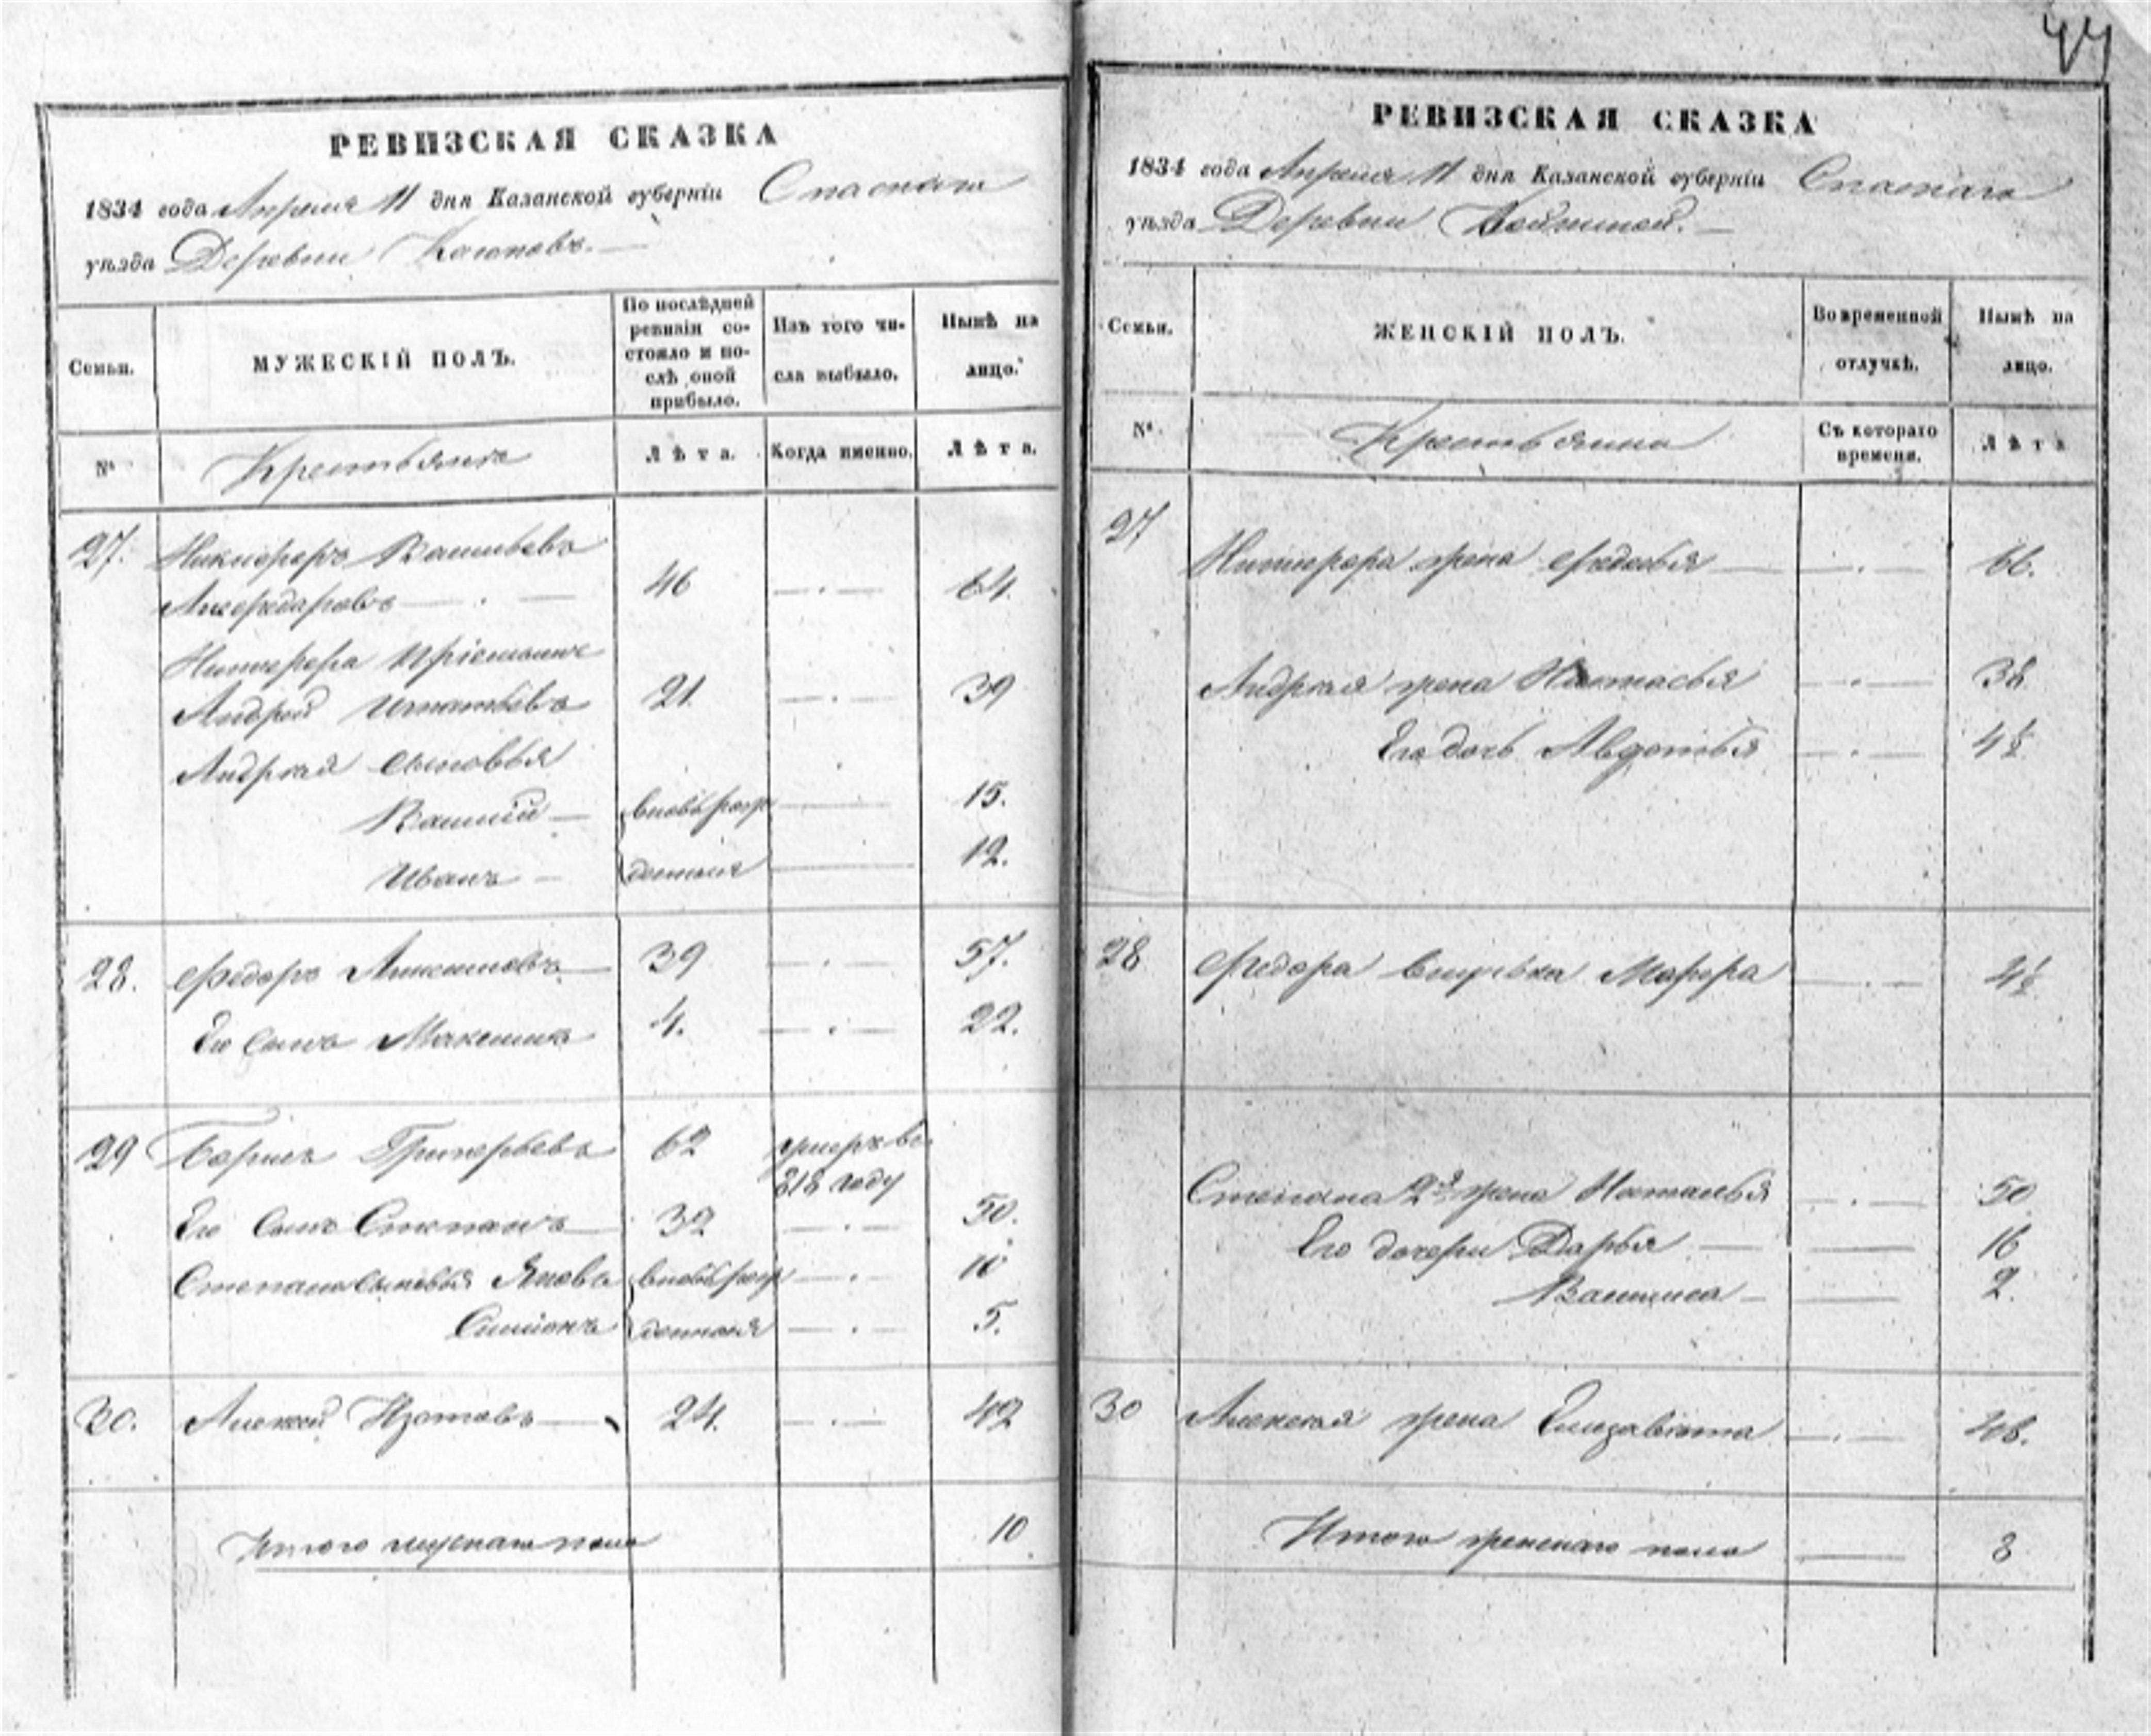 44
РЕВИЗСКАЯ СКАЗКА
1834 года Апреля 11 дня Казанской губерніи Спаскаго
уѣзда Деревни
Семьи.
МУЖЕСКІЙ ПОЛЪ.
По послѣдней
ревизіи со-
стояло и по-
слѣ оной
прибыло.
Изъ того чи-
сла выбыло.
Нынѣ на
лицо.
№
Крестьяня
Лѣта.
Когда именно.
Лѣта.
27. Никифоръ Васильевъ
46 —.— 64.
Никифора Пріемышъ
Андрей Игнатьевъ 21. —.— 39
Андрея сыновья
Василій — вновь рож — 15.
Иванъ — денныя — 12.
28. Федоръ 39 —.— 57.
Его сынъ Максимъ 4. —.— 22.
29 Борисъ Григорьевъ 62 умеръ въ
818 году
Его сынъ Степанъ 32 —.— 50.
Степана сыновья Яковъ вновь рож —.— 10
Симіонъ денныя —.— 5.
30. Алексей Изотовъ — 24. —.— 42
Итого мускаго пола 10
РЕВИЗСКАЯ СКАЗКА
1834 года Апреля 11 дня Казанской губерніи Спаскаго
уѣзда Деревни
Семьи.
ЖЕНСКІЙ ПОЛЪ.
Во временной
отлучкѣ.
Нынѣ на
лицо.
№
Съ котораго
времени.
Лѣта
27
Никифора жена Федосья —.— 66.
Андрея жена Настасья —.— 38
Его дочь Авдотья —.— 4½
28 Федора внучька Марфа —.— 4½
Степана 2я жена Наталья —.— 50
Его дочери Дарья — 16
Василиса — 2.
30 Алексея жена Елизавета —.— 48.
Итого женскаго пола — 8